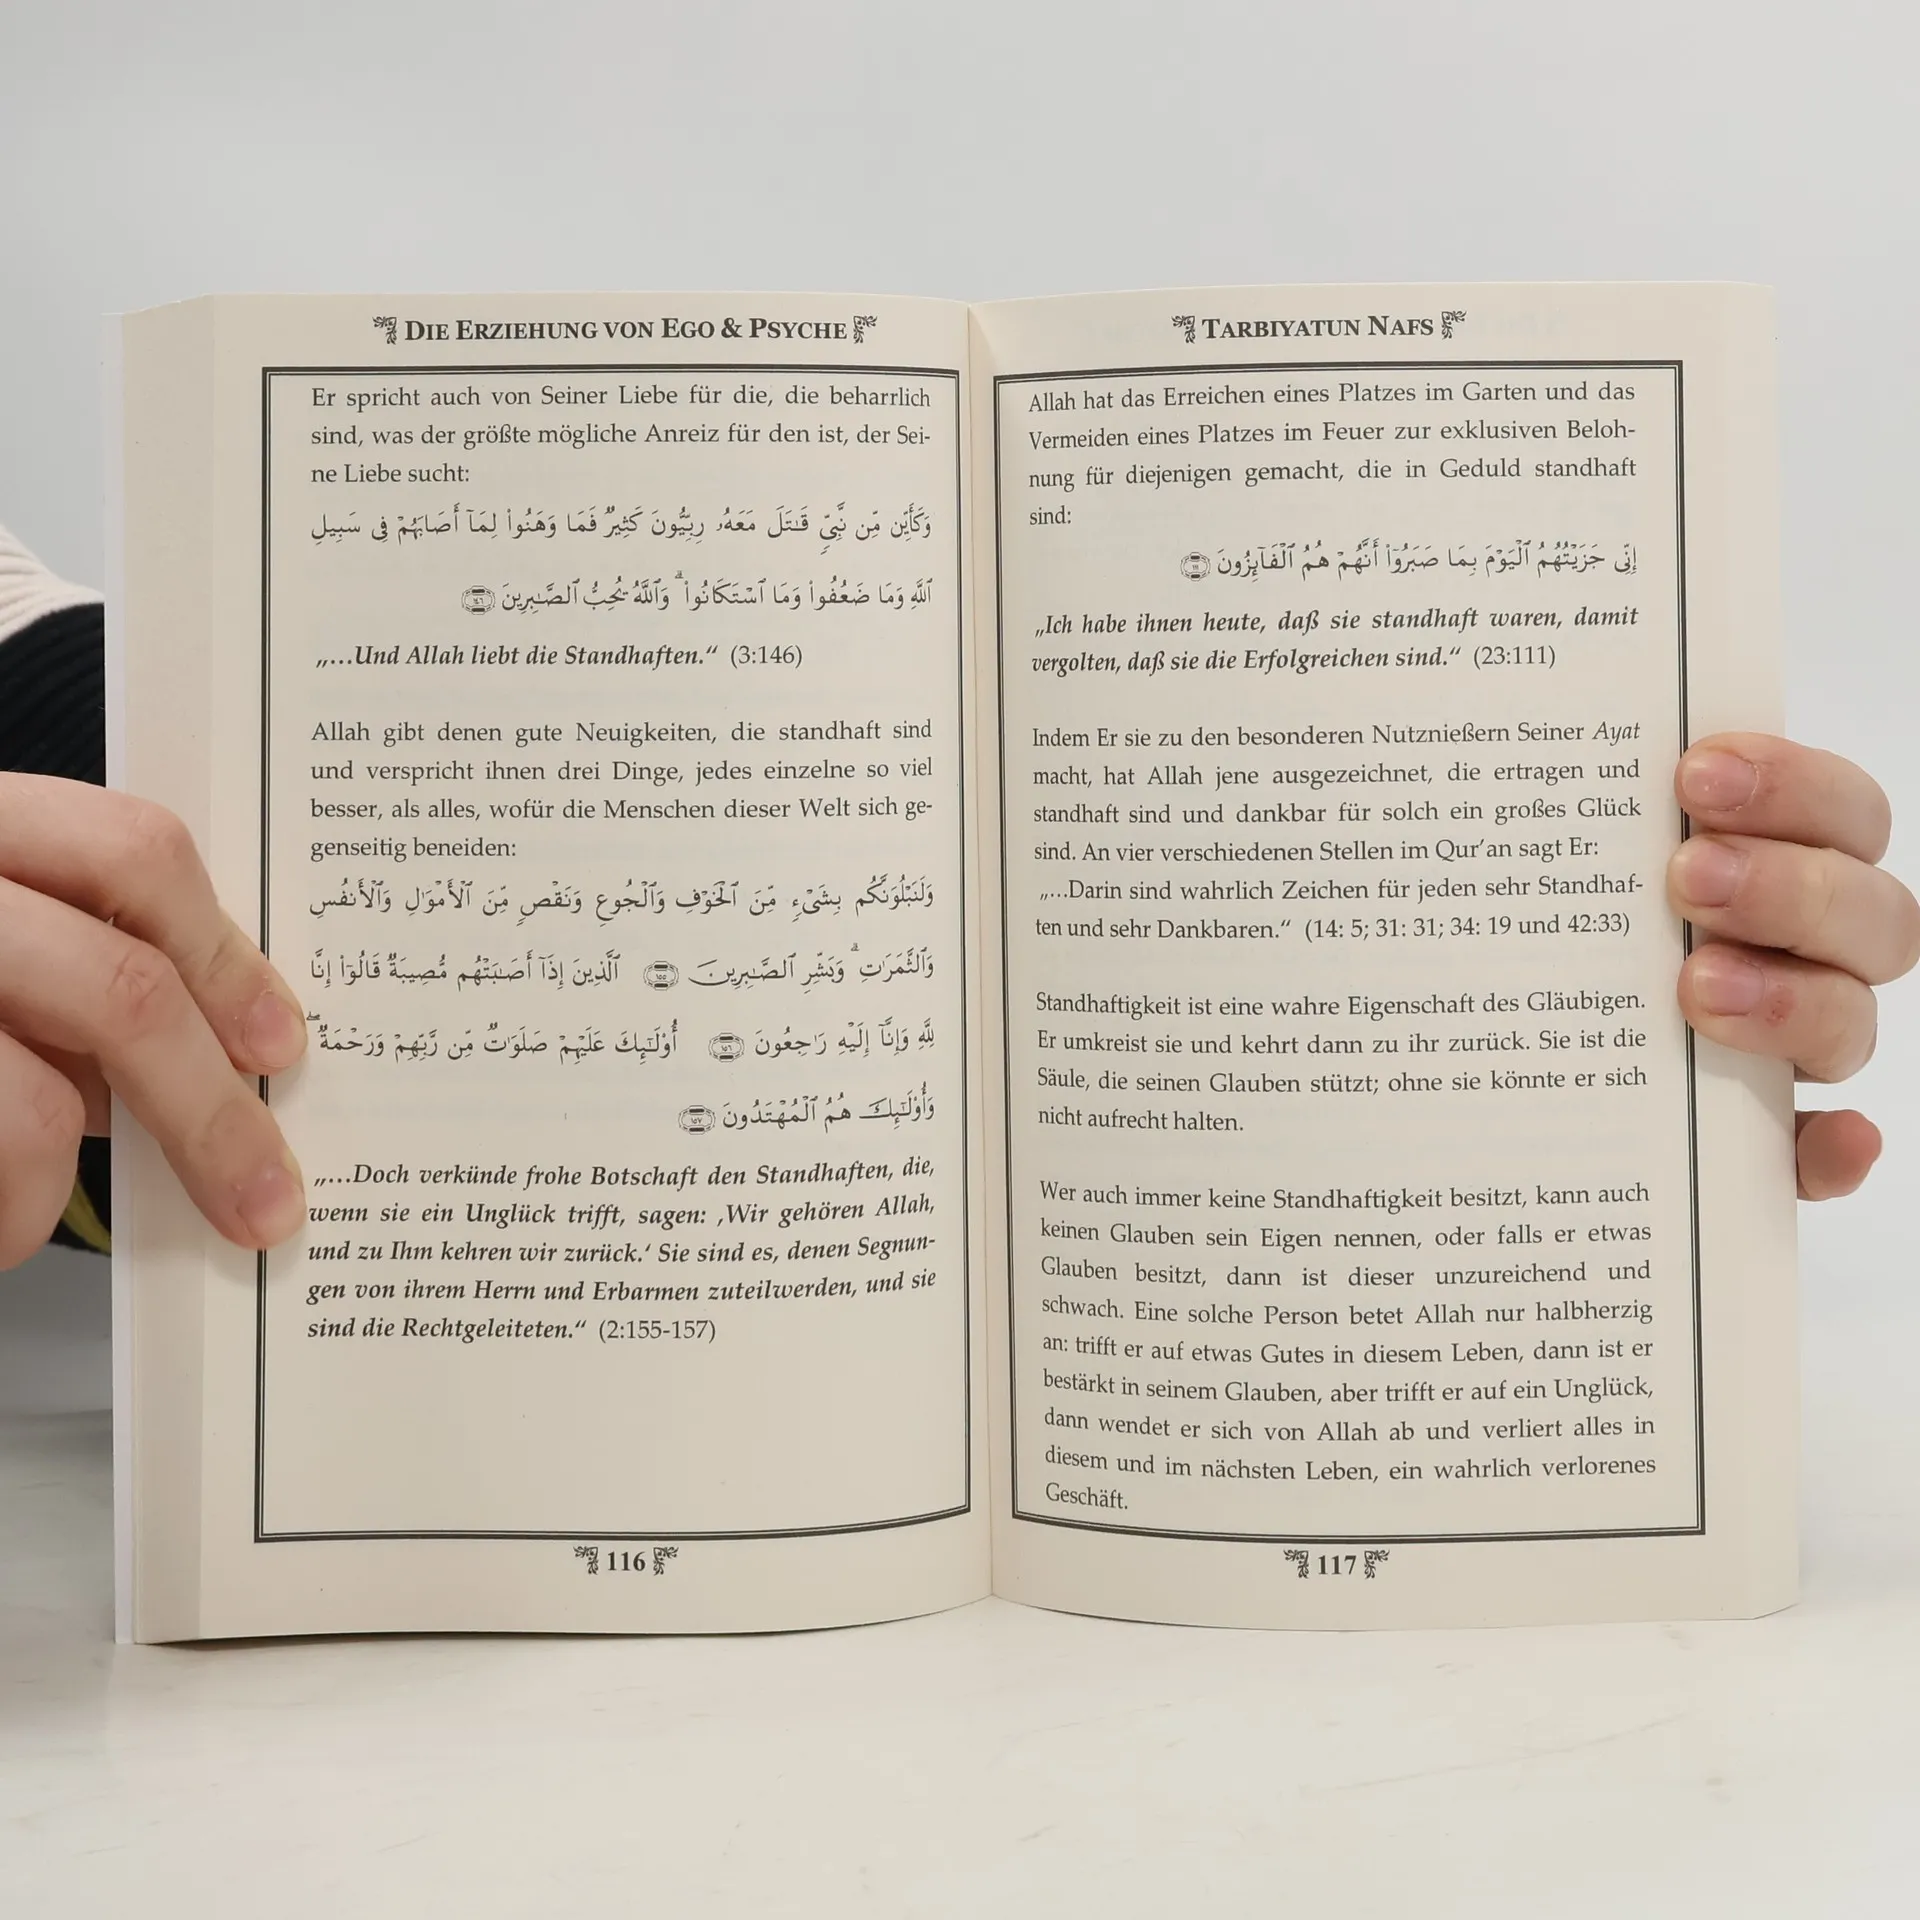 DIE ERZIEHUNG VON EGO & PSYCHE
Er spricht auch von Seiner Liebe für die, die beharrlich
sind, was der größte mögliche Anreiz für den ist, der Sei-
ne Liebe sucht:
وَكَأَيِّن مِّن نَّبِيٍّ قَٰتَلَ مَعَهُۥ رِبِّيُّونَ كَثِيرٌ فَمَا وَهَنُوا۟ لِمَآ أَصَابَهُمْ فِى سَبِيلِ
ٱللَّهِ وَمَا ضَعُفُوا۟ وَمَا ٱسْتَكَانُوا۟ ۗ وَٱللَّهُ يُحِبُّ ٱلصَّٰبِرِينَ ١٤٦
„…Und Allah liebt die Standhaften.“ (3:146)
Allah gibt denen gute Neuigkeiten, die standhaft sind
und verspricht ihnen drei Dinge, jedes einzelne so viel
besser, als alles, wofür die Menschen dieser Welt sich ge-
genseitig beneiden:
وَلَنَبْلُوَنَّكُم بِشَىْءٍ مِّنَ ٱلْخَوْفِ وَٱلْجُوعِ وَنَقْصٍ مِّنَ ٱلْأَمْوَٰلِ وَٱلْأَنفُسِ
وَٱلثَّمَرَٰتِ ۗ وَبَشِّرِ ٱلصَّٰبِرِينَ ١٥٥ ٱلَّذِينَ إِذَآ أَصَٰبَتْهُم مُّصِيبَةٌ قَالُوٓا۟ إِنَّا
لِلَّهِ وَإِنَّآ إِلَيْهِ رَٰجِعُونَ ١٥٦ أُو۟لَٰٓئِكَ عَلَيْهِمْ صَلَوَٰتٌ مِّن رَّبِّهِمْ وَرَحْمَةٌ ۖ
وَأُو۟لَٰٓئِكَ هُمُ ٱلْمُهْتَدُونَ ١٥٧
„…Doch verkünde frohe Botschaft den Standhaften, die,
wenn sie ein Unglück trifft, sagen: ‚Wir gehören Allah,
und zu Ihm kehren wir zurück.‘ Sie sind es, denen Segnun-
gen von ihrem Herrn und Erbarmen zuteilwerden, und sie
sind die Rechtgeleiteten.“ (2:155-157)
116
TARBIYATUN NAFS
Allah hat das Erreichen eines Platzes im Garten und das
Vermeiden eines Platzes im Feuer zur exklusiven Beloh-
nung für diejenigen gemacht, die in Geduld standhaft
sind:
إِنِّى جَزَيْتُهُمُ ٱلْيَوْمَ بِمَا صَبَرُوٓا۟ أَنَّهُمْ هُمُ ٱلْفَآئِزُونَ ١١١
„Ich habe ihnen heute, daß sie standhaft waren, damit
vergolten, daß sie die Erfolgreichen sind.“ (23:111)
Indem Er sie zu den besonderen Nutznießern Seiner Ayat
macht, hat Allah jene ausgezeichnet, die ertragen und
standhaft sind und dankbar für solch ein großes Glück
sind. An vier verschiedenen Stellen im Qur’an sagt Er:
„…Darin sind wahrlich Zeichen für jeden sehr Standhaf-
ten und sehr Dankbaren.“ (14: 5; 31: 31; 34: 19 und 42:33)
Standhaftigkeit ist eine wahre Eigenschaft des Gläubigen.
Er umkreist sie und kehrt dann zu ihr zurück. Sie ist die
Säule, die seinen Glauben stützt; ohne sie könnte er sich
nicht aufrecht halten.
Wer auch immer keine Standhaftigkeit besitzt, kann auch
keinen Glauben sein Eigen nennen, oder falls er etwas
Glauben besitzt, dann ist dieser unzureichend und
schwach. Eine solche Person betet Allah nur halbherzig
an: trifft er auf etwas Gutes in diesem Leben, dann ist er
bestärkt in seinem Glauben, aber trifft er auf ein Unglück,
dann wendet er sich von Allah ab und verliert alles in
diesem und im nächsten Leben, ein wahrlich verlorenes
Geschäft.
117